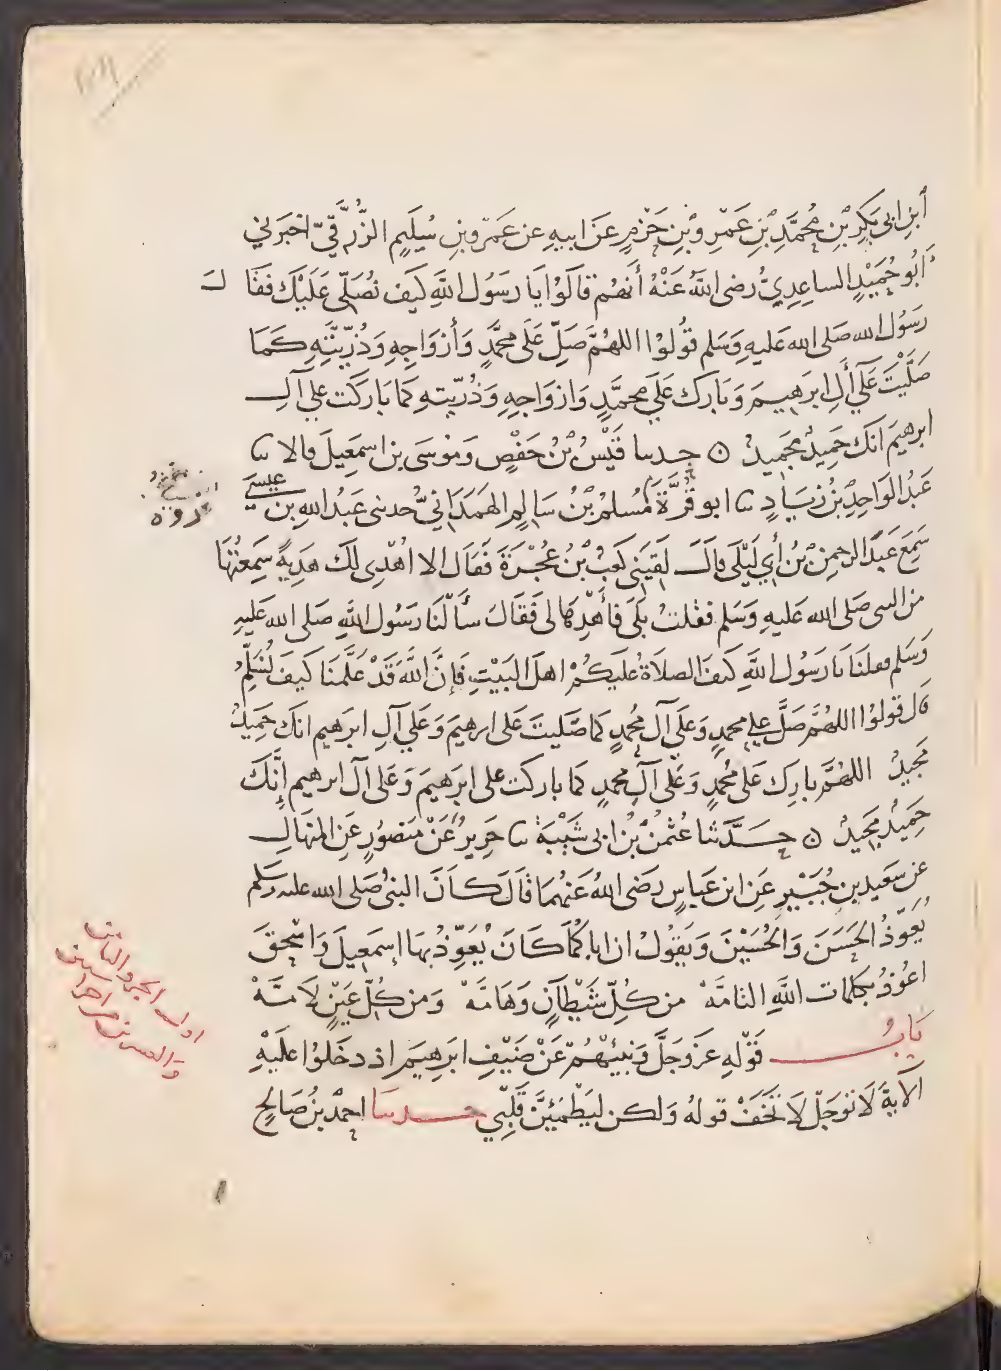 ابن ابى بَكرِ بْنِ مُحمَّدِ بْنِ عَمْرِو بْنِ حَزْمٍ عَنْ ابيهِ عن عَمْرو بنِ سُلَيمٍ الزُّرَقِيّ اخبَرنى
ابُو حُمَيْدٍ الساعِدِيُّ رضى اللهُ عَنْهُ أَنهُم قالَوُا يَا رَسُول اللهِ كَيف نُصَلّى عَلَيْك فقَا لَ
رسُول الله صَلى الله عَليهِ وَسَلم قُولُوْا اللهُمَّ صَلِّ عَلَى محمَّدٍ وَأزوَاجِهِ وَذُرّيَّتِهِ كَمَا
صَلَّيْتَ عَلَى آلِ ابرَهِيمَ وَبَارك عَلَى محمَّدٍ وَازوَاجِهِ وَذُرّيتهِ كمَا بَاركَت على آلِ
ابرهيمَ انكَ حَمِيدٌ مجَيدٌ ○ حدسا قَيْسُ بْنُ حَفْصٍ وَمُوسَى بن اسمَعِيلَ قالا نا
عَبْدُ الوَاحِدِ بْنُ زيَادٍ نا ابو قُرَّةَ مُسلمُ بْنُ سَالمٍ الهَمَدَانِيُّ حدثنى عَبْدُ اللهِ بن عيسى
سَمِعَ عَبْدَ الرحمنِ بْنَ أَبِي لَيْلَى قالَ لَقِيَنِى كَعْبُ بْنُ عُجْرَةَ فَقَال الا اُهْدِى لَكَ هَدِيةً سَمِعتُهَا
من النبى صَلى الله عَليهِ وَسَلم فقلتُ بَلَى فأَهْدِهَا لى فَقَالَ سَأَلْنَا رَسُول اللهِ صَلى الله عَليهِ
وَسَلم فقلنَا يَا رَسُول اللهِ كَيفَ الصلاَةُ عَليَكُمْ اهلَ البَيْتِ فَإنَّ اللهَ قَدْ عَلَّمَنَا كَيفَ نُسَلِّمُ
قال قولوُا اللهُمَّ صَلِّ على محمدٍ وَعَلَى آل مُحمدٍ كمَا صَليتَ عَلى ابرهيمَ وَعَلى آلِ ابرَهيم انكَ حَميدٌ
مَجيدٌ اللهُمَّ بارِك عَلى مُحمدٍ وَعَلى آلِ محمدٍ كمَا باركت على ابرَهيمَ وَعَلى آل ابرهيم إنَّكَ
حَمِيدٌ مجَيدٌ ○ حَدَّثنا عُثمنُ بْنُ ابى شَيْبَةَ نا جَرِيرٌ عَنْ مَنصُورٍ عَنِ المِنهَالِ
عن سَعيد بنِ جُبَيْرٍ عَنِ ابن عَباسٍ رَضى اللهُ عَنهُمَا قالَ كَانَ النبىُ صَلى الله عليه وسَلم
يُعَوّذُ الحَسَنَ وَالحُسَيْنَ وَيَقولُ ان اباكُمَا كَانَ يُعَوِّذُ بهَا اِسمَعيلَ وَاسْحقَ
اعُوْذُ بكلمات اللهِ التامَّةْ من كُلِّ شَيْطَانٍ وَهَامَّهْ وَمن كُلّ عَيْنٍ لاَمَّهْ
بَابُ قَوْلِهِ عزَّوَجَلَّ وَنبِّئْهُمْ عَنْ ضَيْفِ ابرَهِيَمَ اذ دخَلوُا عَليْهِ
الآيةَ لاَ تَوْجَلْ لاَ تخَفْ قولهُ وَلكن ليَطْمَئِنَّ قَلْبِي حدسا احمدُ بنُ صَالحٍ
اول الجزو الثامن